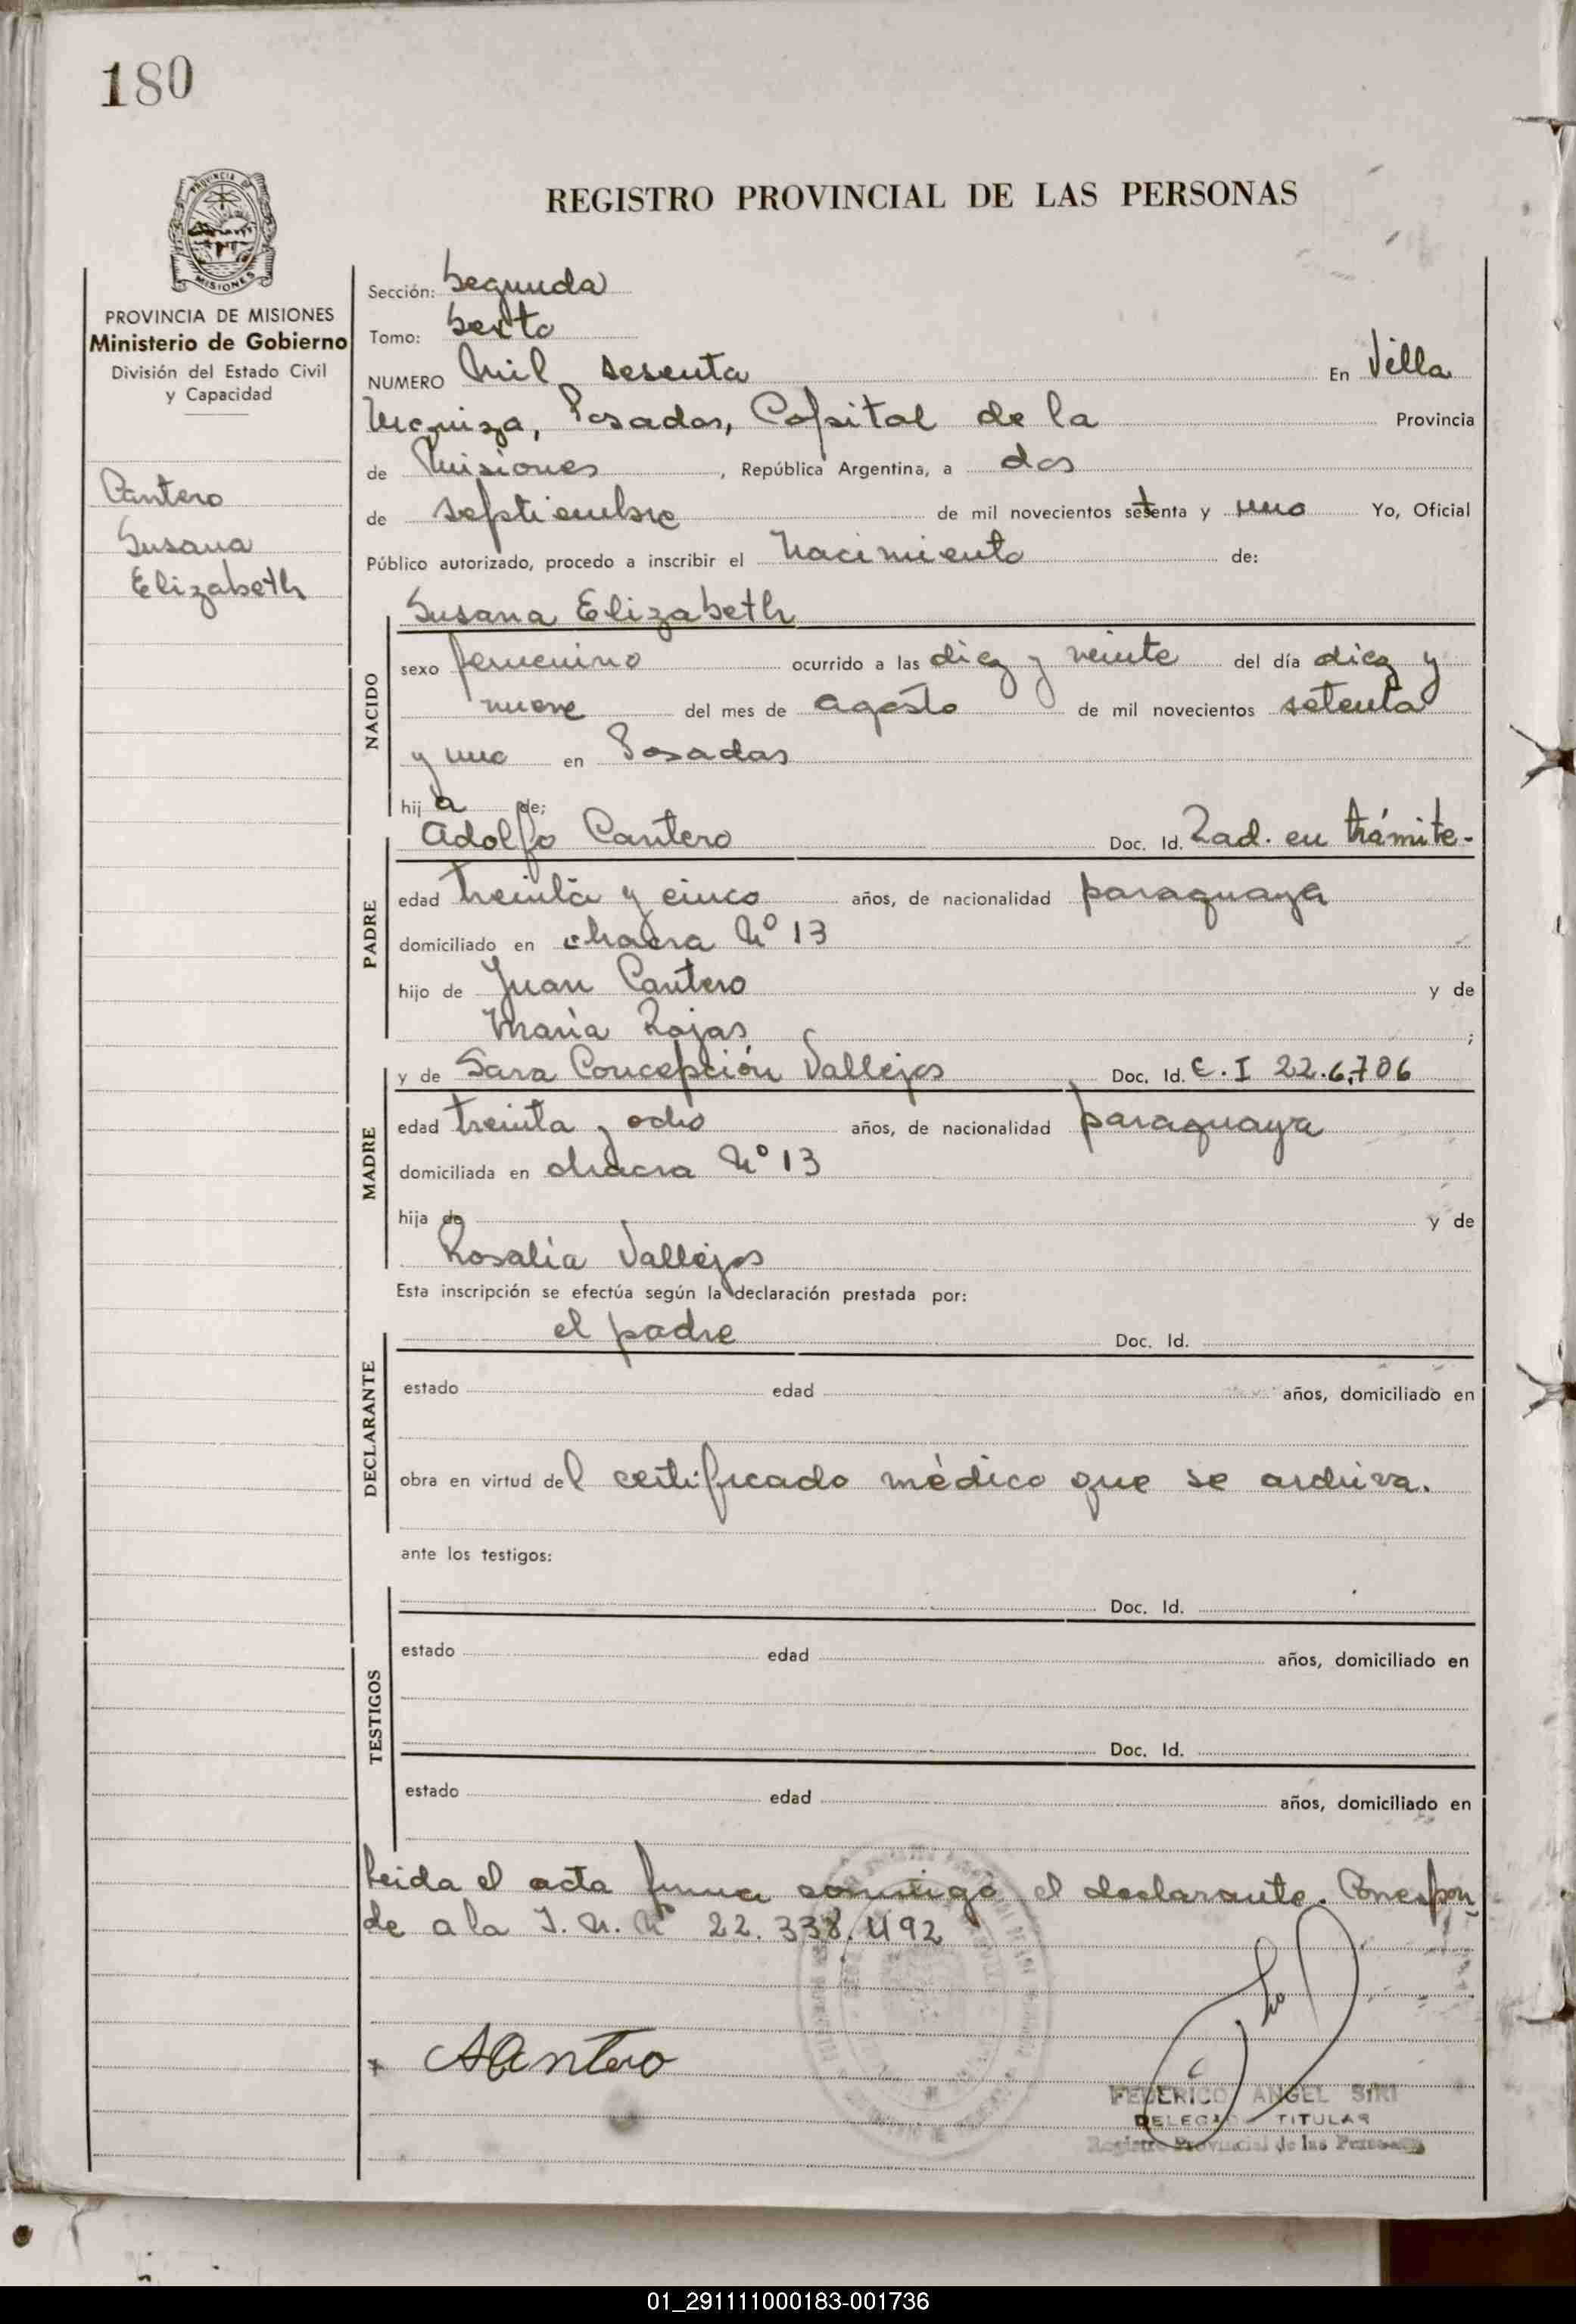 180
REGISTRO PROVINCIAL DE LAS PERSONAS
PROVINCIA DE MISIONES
MISIONES
PROVINCIA DE MISIONES
Ministerio de Gobierno
División del Estado Civil
y Capacidad
Cantero
Susana
Elizabeth
Sección: Segunda
Tomo: Sexto
NUMERO Mil sesenta En Villa
Urquiza, Posadas, Capital de la Provincia
de Misiones, República Argentina, a dos
de septiembre de mil novecientos setenta y uno Yo, Oficial
Público autorizado, procedo a inscribir el Nacimiento de:
NACIDO
Susana Elizabeth
sexo femenino ocurrido a las diez y veinte del día diez y
nueve del mes de agosto de mil novecientos setenta
y uno en Posadas
hija de:
PADRE
Adolfo Cantero Doc. Id. Rad. en trámite.-
edad treinta y cinco años, de nacionalidad paraguaya
domiciliado en chacra Nº 13
hijo de Juan Cantero y de
María Rojas ;
MADRE
y de Sara Concepción Vallejos Doc. Id. C.I 22.6,706
edad treinta y ocho años, de nacionalidad paraguaya
domiciliada en chacra Nº 13
hija de y de
Rosalía Vallejos
Esta inscripción se efectúa según la declaración prestada por:
DECLARANTE
el padre Doc. Id.
estado edad años, domiciliado en
obra en virtud del certificado médico que se archiva.
ante los testigos:
TESTIGOS
Doc. Id.
estado edad años, domiciliado en
Doc. Id.
estado edad años, domiciliado en
Leida el acta firma conmigo el declarante. Correspon-
de a la I. N. Nº 22.338.492
ACantero
FEDERICO ANGEL SIRI
DELEGADO TITULAR
Registro Provincial de las Personas
01_291111000183-001736